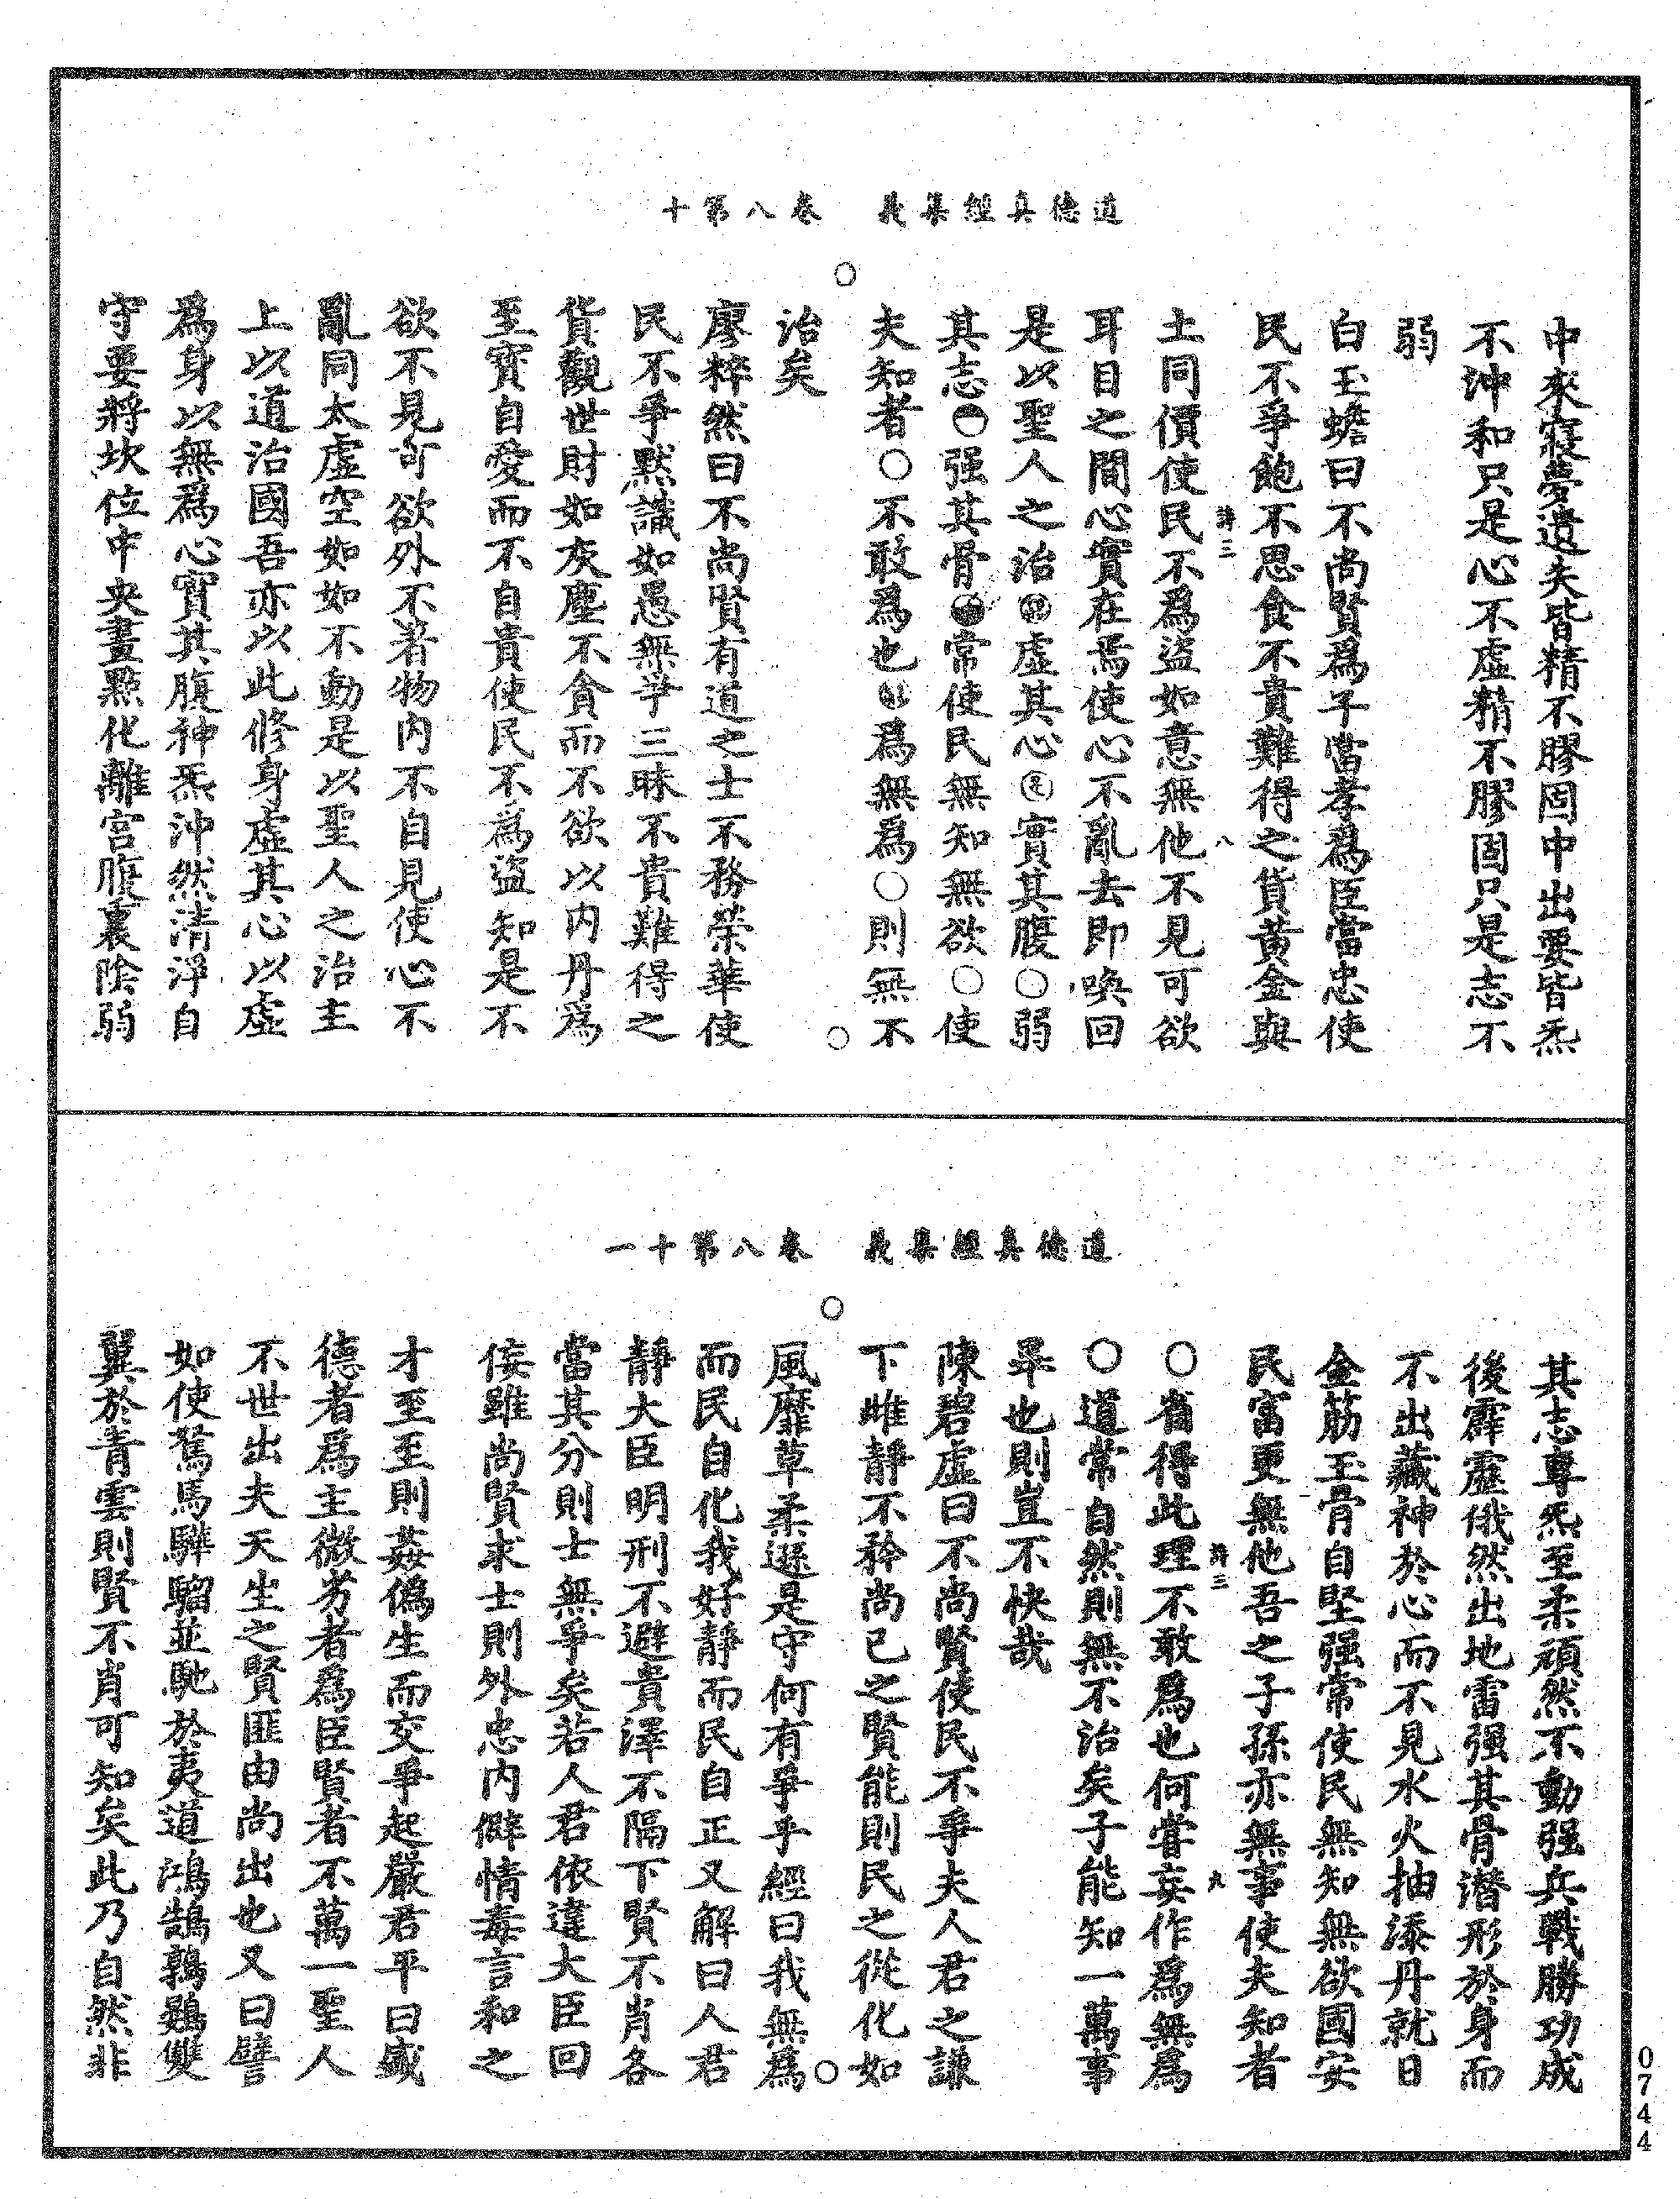 道德真經集義　卷八第十
中來寢夢遺失皆精不膠固中出要皆炁
不沖和只是心不虛精不膠固只是志不
弱
白玉蟾曰不尚賢爲子當孝爲臣當忠使
民不爭飽不思食不貴難得之貨黃金與
詩三　八
土同價使民不爲盜如意無他不見可欲
耳目之間心實在焉使心不亂去即喚回
是以聖人之治虛其心實其腹○弱
其志强其骨常使民無知無欲○使
夫知者○不敢爲也爲無爲○則無不
治矣
廖粹然曰不尚賢有道之士不務榮華使
民不爭默識如愚無爭三昧不貴難得之
貨觀世財如灰塵不貪而不欲以内丹爲
至寶自愛而不自貴使民不爲盜知是不
欲不見可欲外不著物内不自見使心不
亂同太虛空如如不動是以聖人之治主
上以道治國吾亦以此修身虛其心以虛
爲身以無爲心實其腹神炁沖然清淨自
守要將坎位中央畫點化離宮腹裏陰弱
道德真經集義　卷八第十一
其志專炁至柔頑然不動强兵戰勝功成
後霹靂俄然出地雷强其骨潛形於身而
不出藏神於心而不見水火抽添丹就日
金筋玉骨自堅强常使民無知無欲國安
民富更無他吾之子孫亦無事使夫知者
詩三　九
○省得此理不敢爲也何嘗妄作爲無爲
○道常自然則無不治矣子能知一萬事
畢也則豈不快哉
陳碧虛曰不尚賢使民不爭夫人君之謙
下雌靜不矜尚已之賢能則民之從化如
風靡草柔遜是守何有爭乎經曰我無爲
而民自化我好靜而民自正又解曰人君
靜大臣明刑不避貴澤不隔下賢不肖各
當其分則士無爭矣若人君依違大臣回
佞雖尚賢求士則外忠内僻情毒言和之
才至至則姦僞生而交爭起嚴君平曰盛
德者爲主微劣者爲臣賢者不萬一聖人
不世出夫天生之賢匪由尚出也又曰譬
如使駑馬驊騮並馳於夷道鴻鵠鶉鷃雙
翼於青雲則賢不肖可知矣此乃自然非
0744